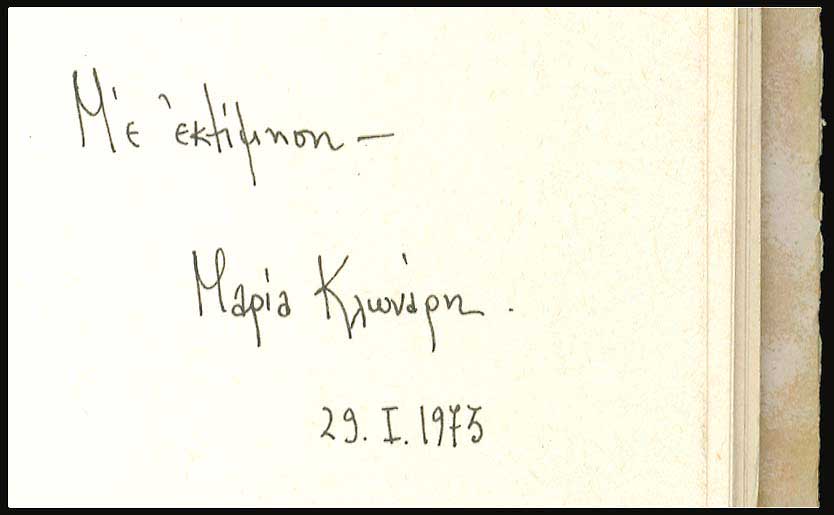 Μὲ ἐκτίμηση —
Μαρία Κλωνάρη.
29. I. 1973